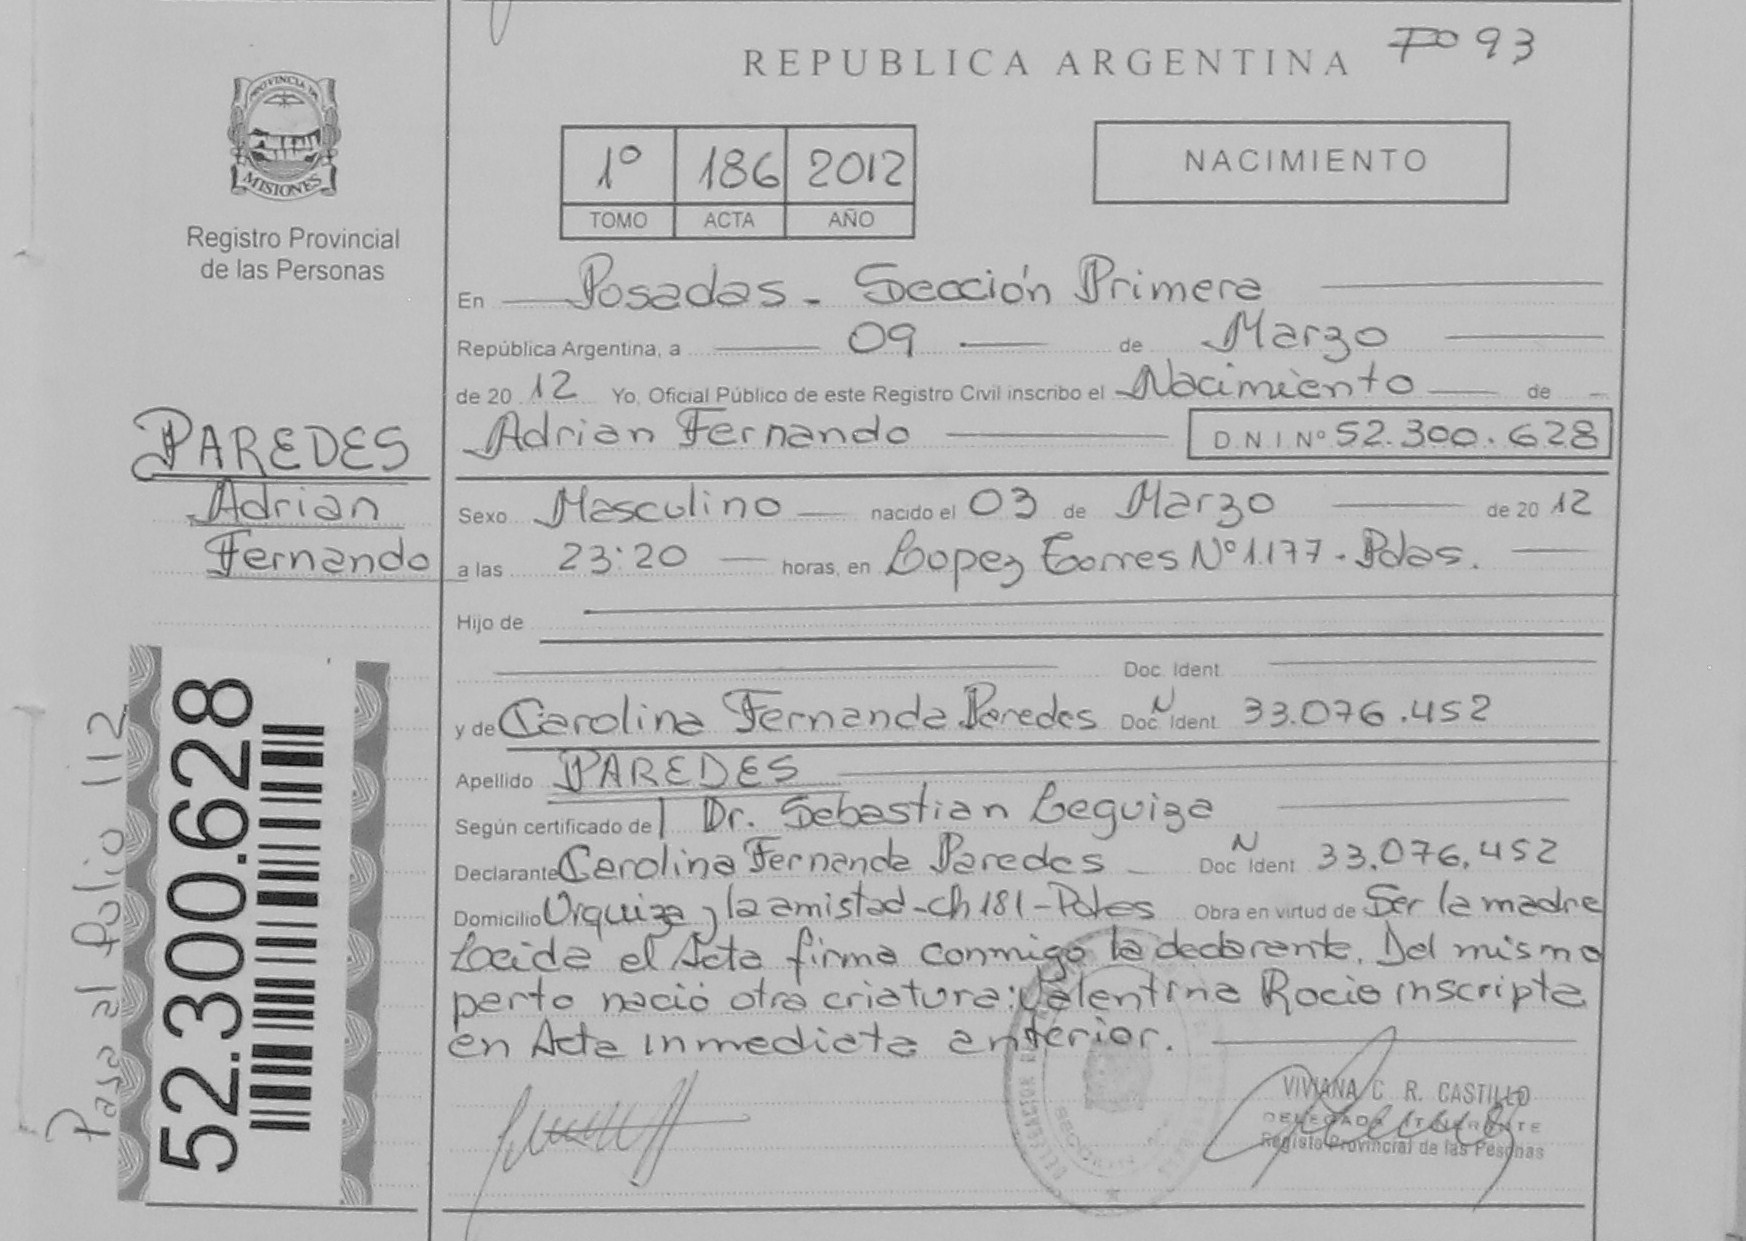 Fº 93
REPUBLICA ARGENTINA
PROVINCIA DE
MISIONES
Registro Provincial
de las Personas
1º 186 2012
TOMO ACTA AÑO
NACIMIENTO
En Posadas - Sección Primera
República Argentina, a 09 de Marzo
de 20 12 Yo, Oficial Público de este Registro Civil inscribo el Nacimiento de
Adrian Fernando D.N.I Nº 52.300.628
PAREDES
Adrian
Fernando
Sexo Masculino nacido el 03 de Marzo de 20 12
a las 23:20 horas, en Lopez Torres Nº 1.177 - Pdas.
Hijo de
Doc. Ident.
y de Carolina Fernanda Paredes Doc N Ident. 33.076.452
Apellido PAREDES
Según certificado de Dr. Sebastian Leguiza
Declarante Carolina Fernanda Paredes Doc N Ident 33.076.452
Domicilio Urquiza y la amistad - Ch 181 - Pdas Obra en virtud de Ser la madre
Leida el Acta firma conmigo la declarante. Del mismo
parto nació otra criatura: Valentina Rocio inscripta
en Acta inmediata anterior.
VIVIANA C. R. CASTILLO
DELEGADA ITINERANTE
Registo Provincial de las Pesonas
52.300.628
Pasa al folio 112